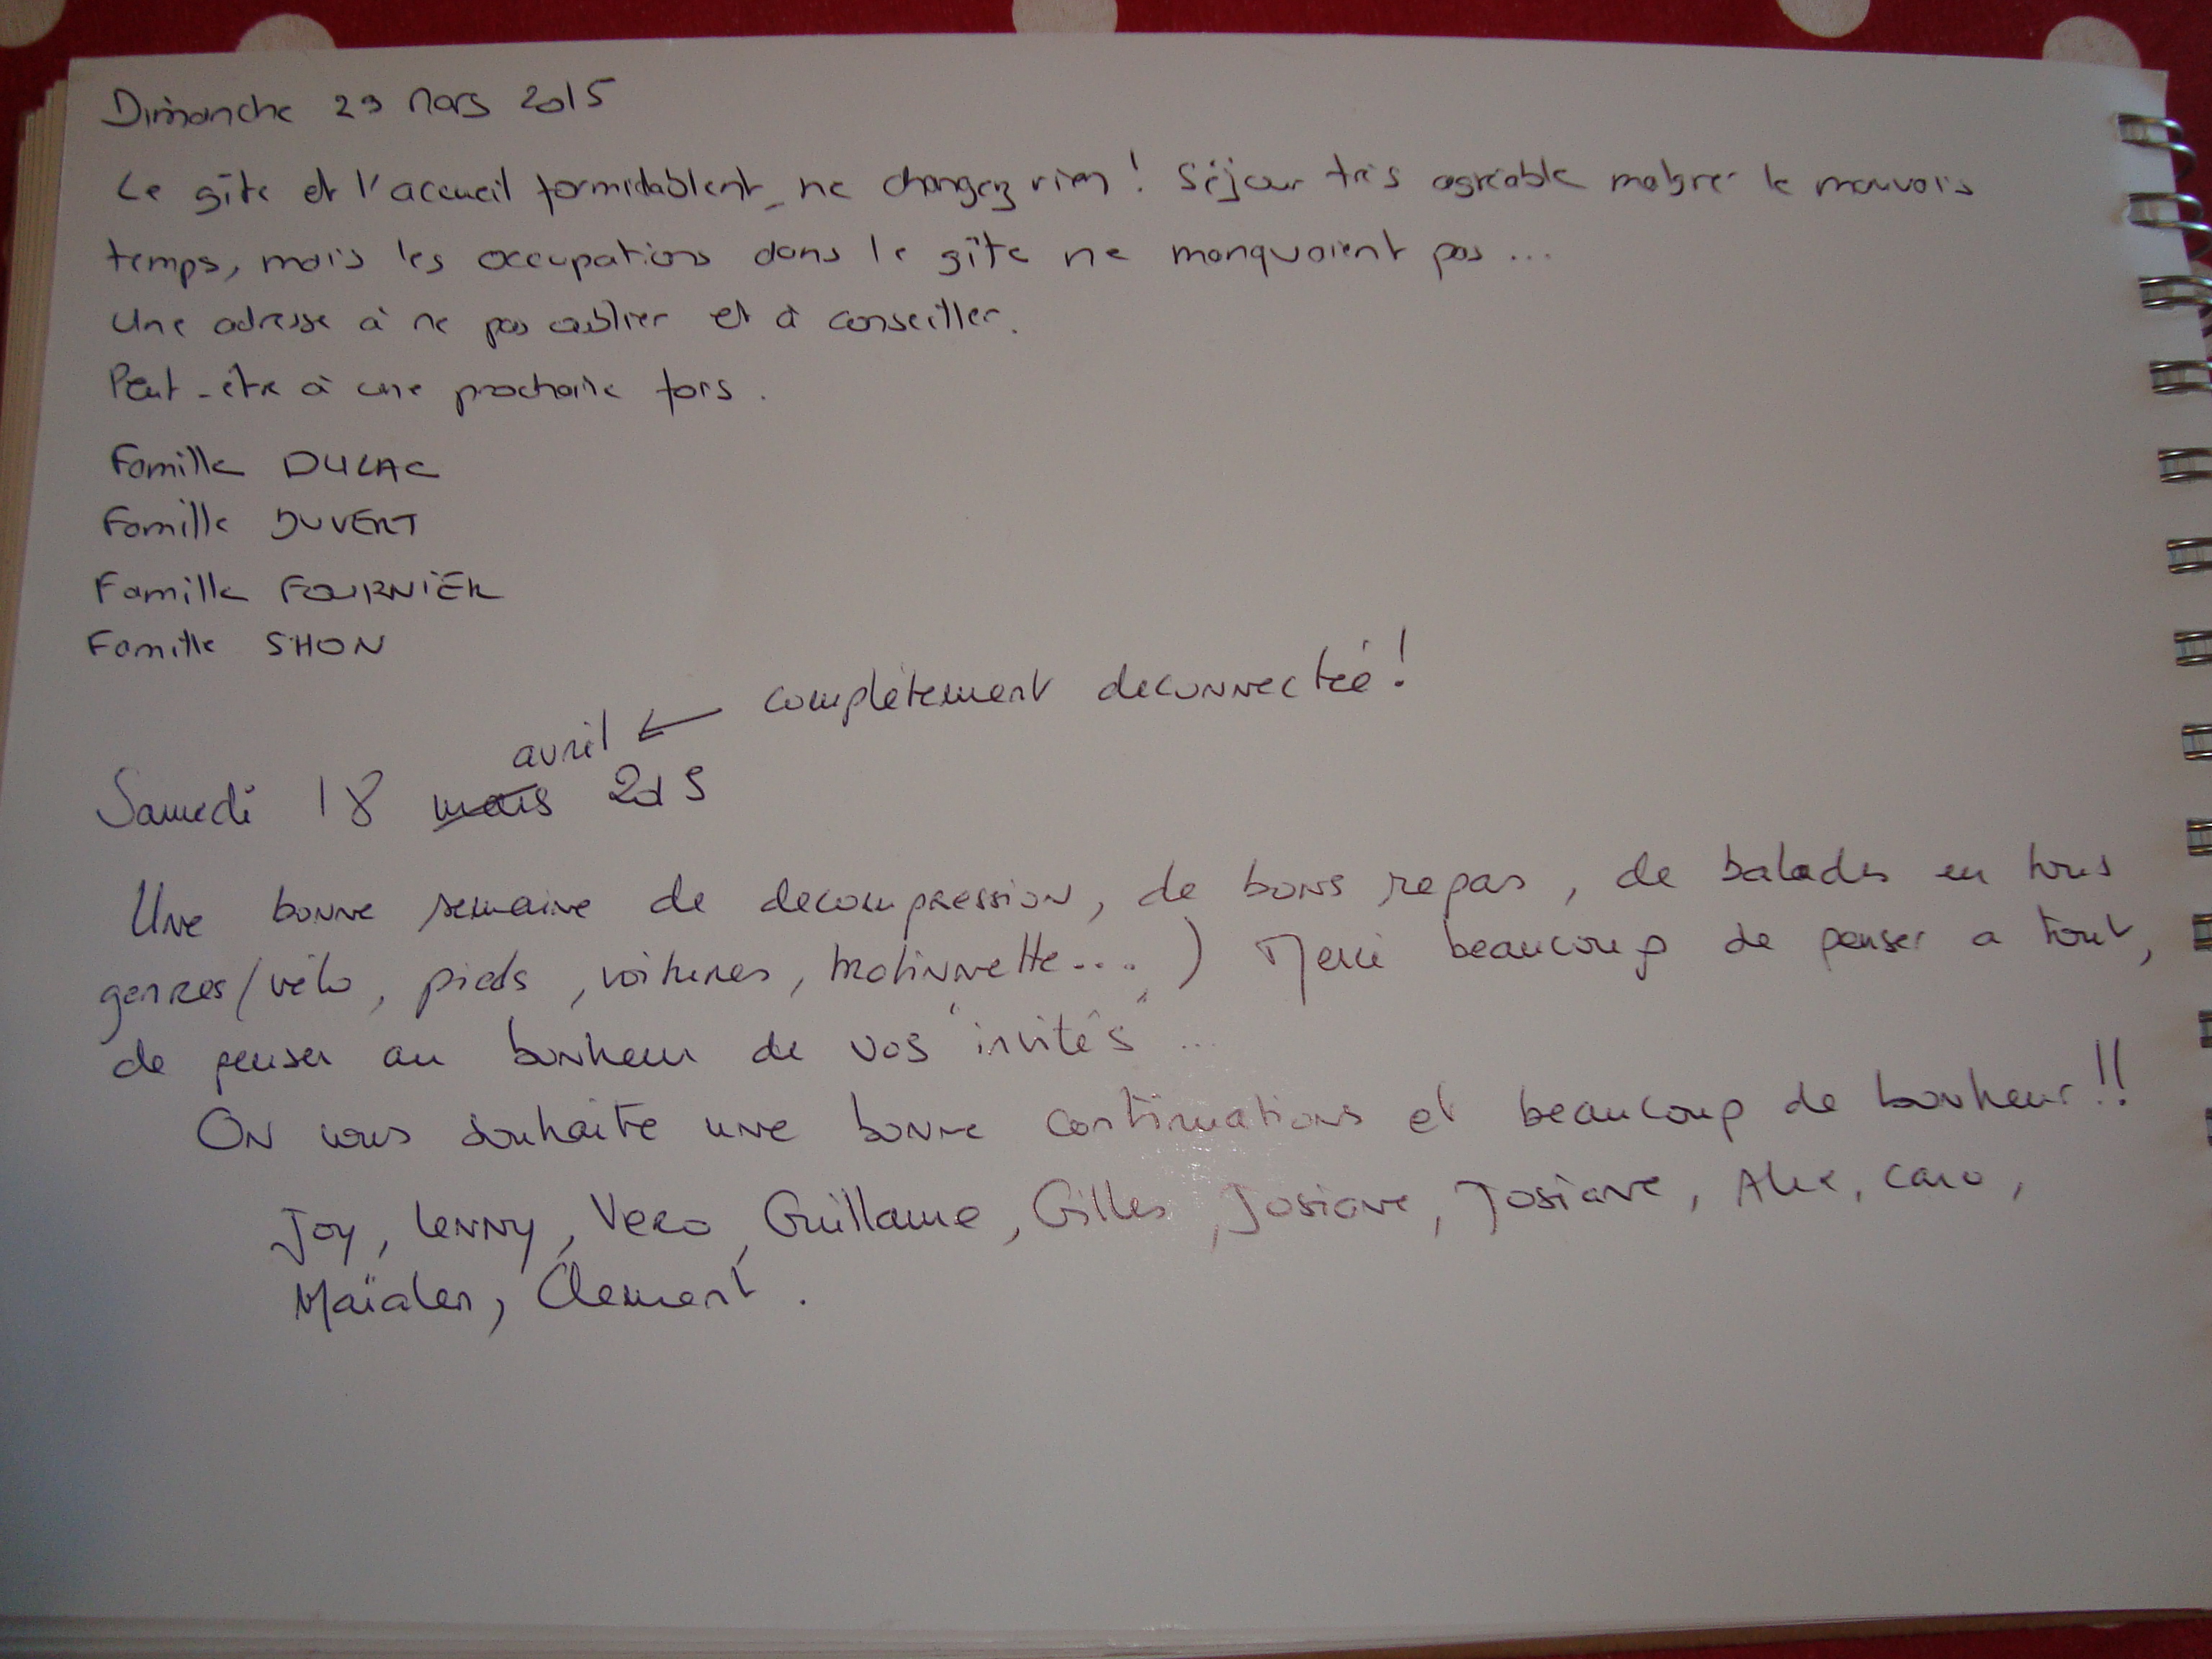 Dimanche 29 Mars 2015
Le gîte et l'accueil formidablent, ne changez rien ! Séjour très agréable malgrer le mauvais
temps, mais les occupations dans le gîte ne manquaient pas ...
Une adresse à ne pas oublier et à conseiller.
Peut-être à une prochaine fois.
Famille DULAC
Famille DUVERT
Famille FOURNIER
Famille SHON
avril ← complètement deconnectée !
Samedi 18 mars 2015
Une bonne semaine de decompression, de bons repas, de balades en tous
genres (vélo, pieds, voitures, trotinnette....) Merci beaucoup de penser a tout,
de penser au bonheur de vos "invités" ...
On vous souhaite une bonne continuations et beaucoup de bonheur !!
Joy, Lenny, Vero, Guillaume, Gilles, Josiane, Josiane, Alex, Caro,
Maïalen, Clement.